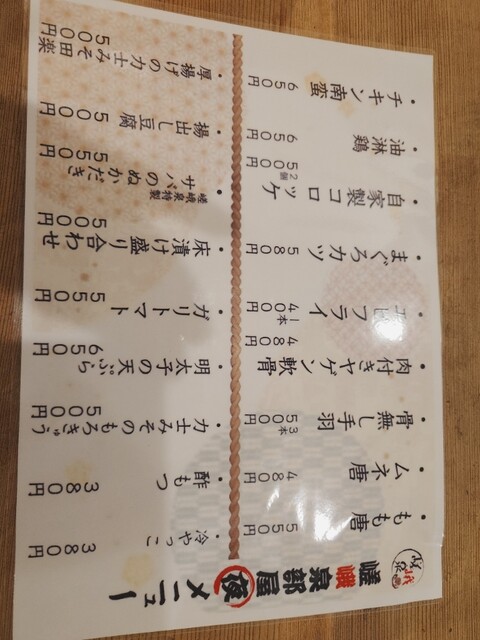 嵯峨泉部屋 夜 メニュー
・もも唐 550円
・ムネ唐 480円
・骨無し手羽 3本500円
・肉付きヤゲン軟骨 480円
・エビフライ 1本400円
・まぐろカツ 580円
・自家製コロッケ 2個500円
・油淋鶏 650円
・チキン南蛮 650円
・冷やっこ 380円
・酢もつ 380円
・力士みそのもろきゅう 500円
・明太子の天ぷら 650円
・ガリトマト 550円
・床漬け盛り合わせ 500円
・嵯峨泉特製
サバのぬかだき 550円
・揚出し豆腐 500円
・厚揚げの力士みそ田楽 500円